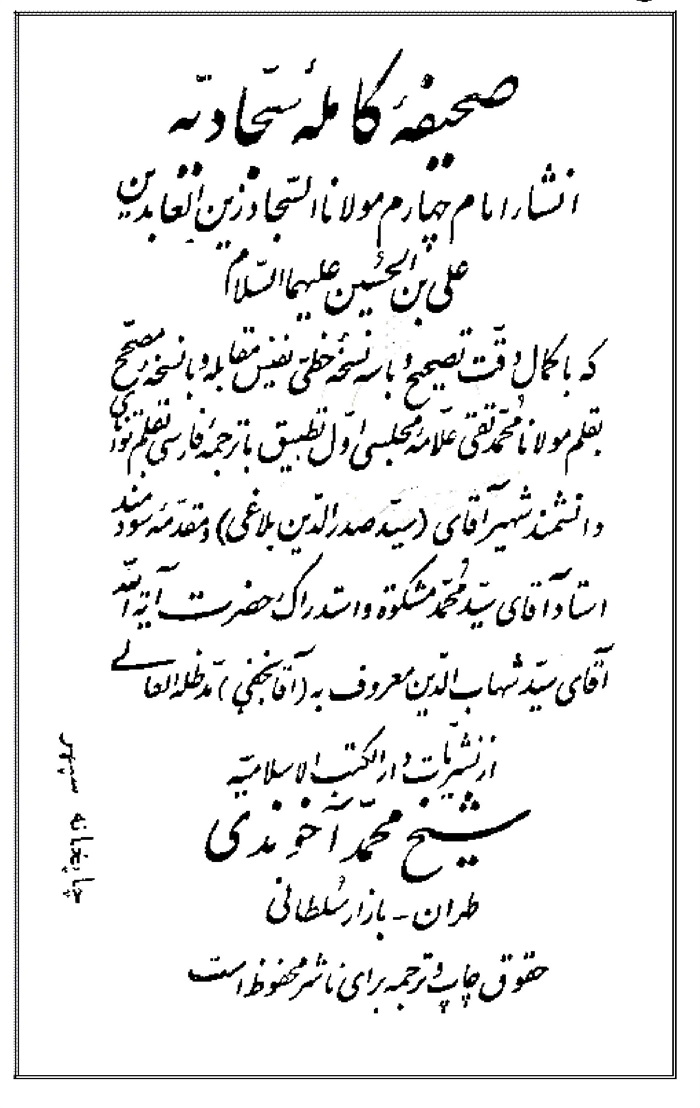 صحیفهٔ کاملهٔ سجّادیّه
انشاء امام چهارم مولانا السّجاد زین العابدین
علی بن الحسین علیهما السّلام
که با کمال دقّت تصحیح و با سه نسخهٔ خطّی نفیس مقابله و با نسخهٔ مصحّح
بقلم مولانا محمّد تقی علّامهٔ مجلسی اوّل تطبیق با ترجمهٔ فارسی بقلم توانای
دانشمند شهیر آقای (سیّد صدرالدّین بلاغی) و مقدّمهٔ سودمند
استاد آقای سیّد محمّد مشکوة و استدراک حضرت آیة اللّه
آقای سیّد شهاب الدّین معروف به (آقا نجفی) مدّ ظلّه العالی
از نشریّات دار الکتب الاسلامیّه
شیخ محمّد آخوندی
طهران - بازار سُلطانی
حقوق چاپ و ترجمه برای ناشر محفوظ است
چاپخانه سپهر